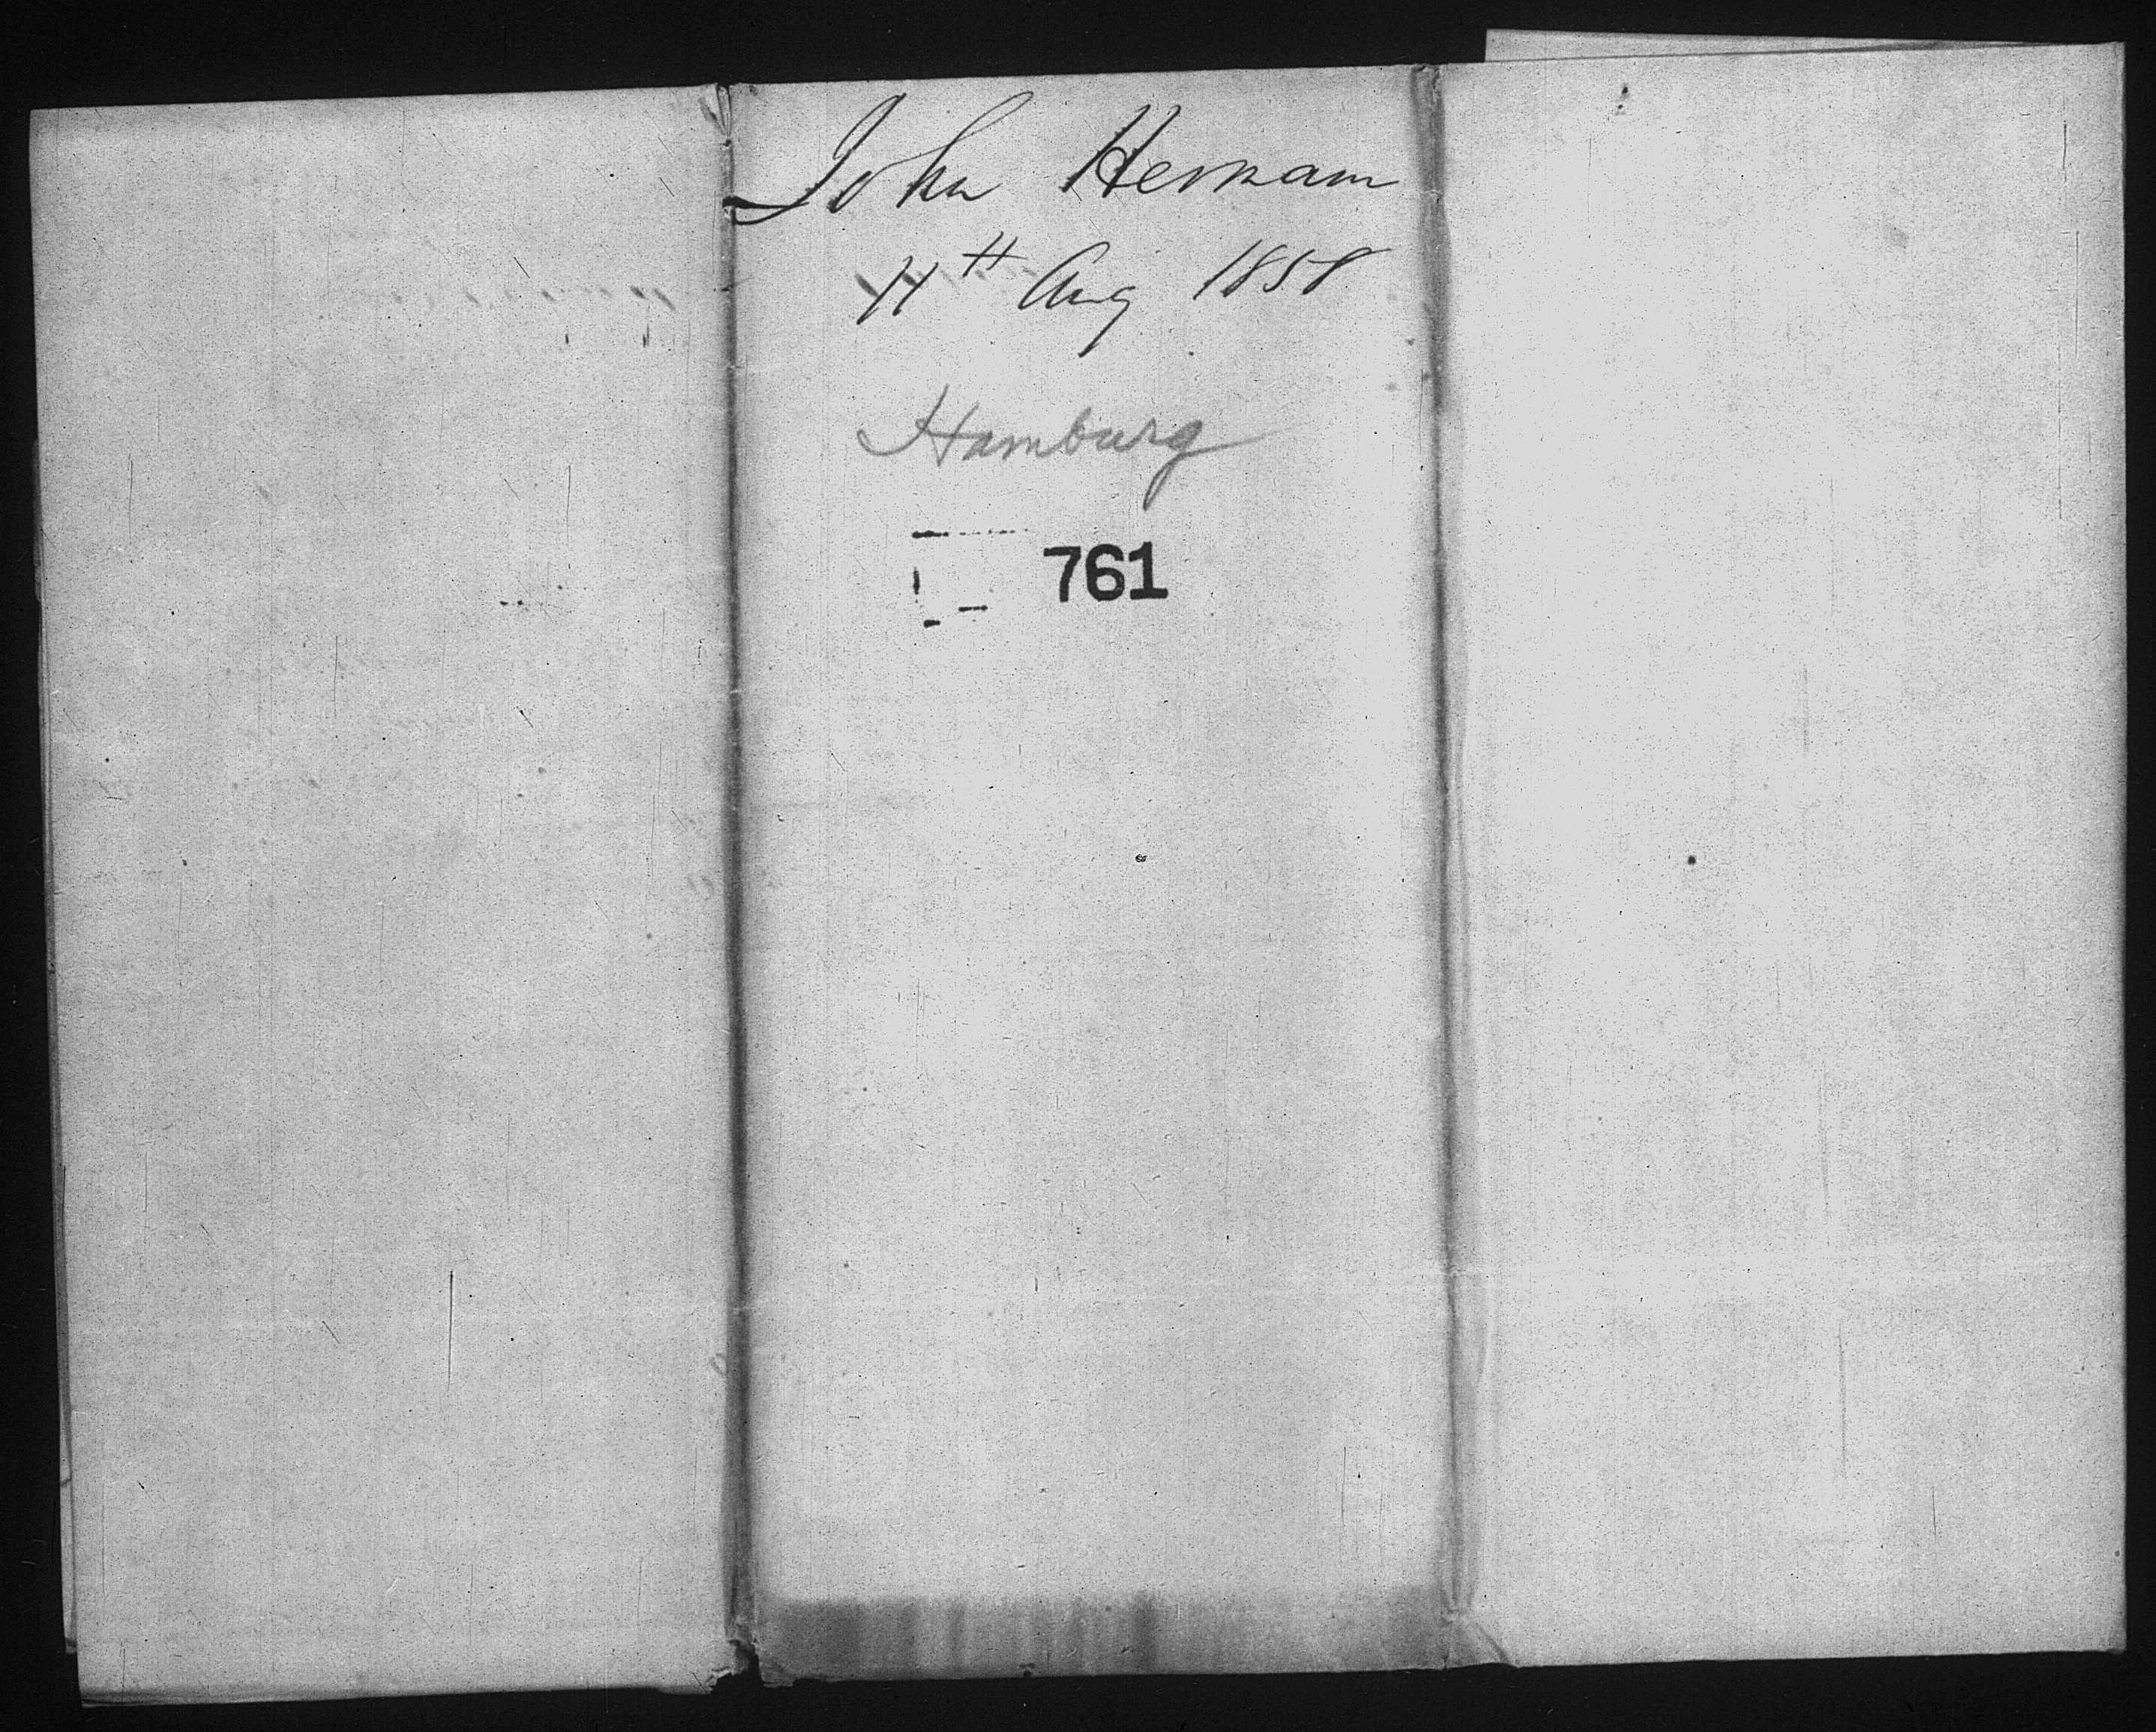 John Hermann
11th Aug 1858
Hamburg
761